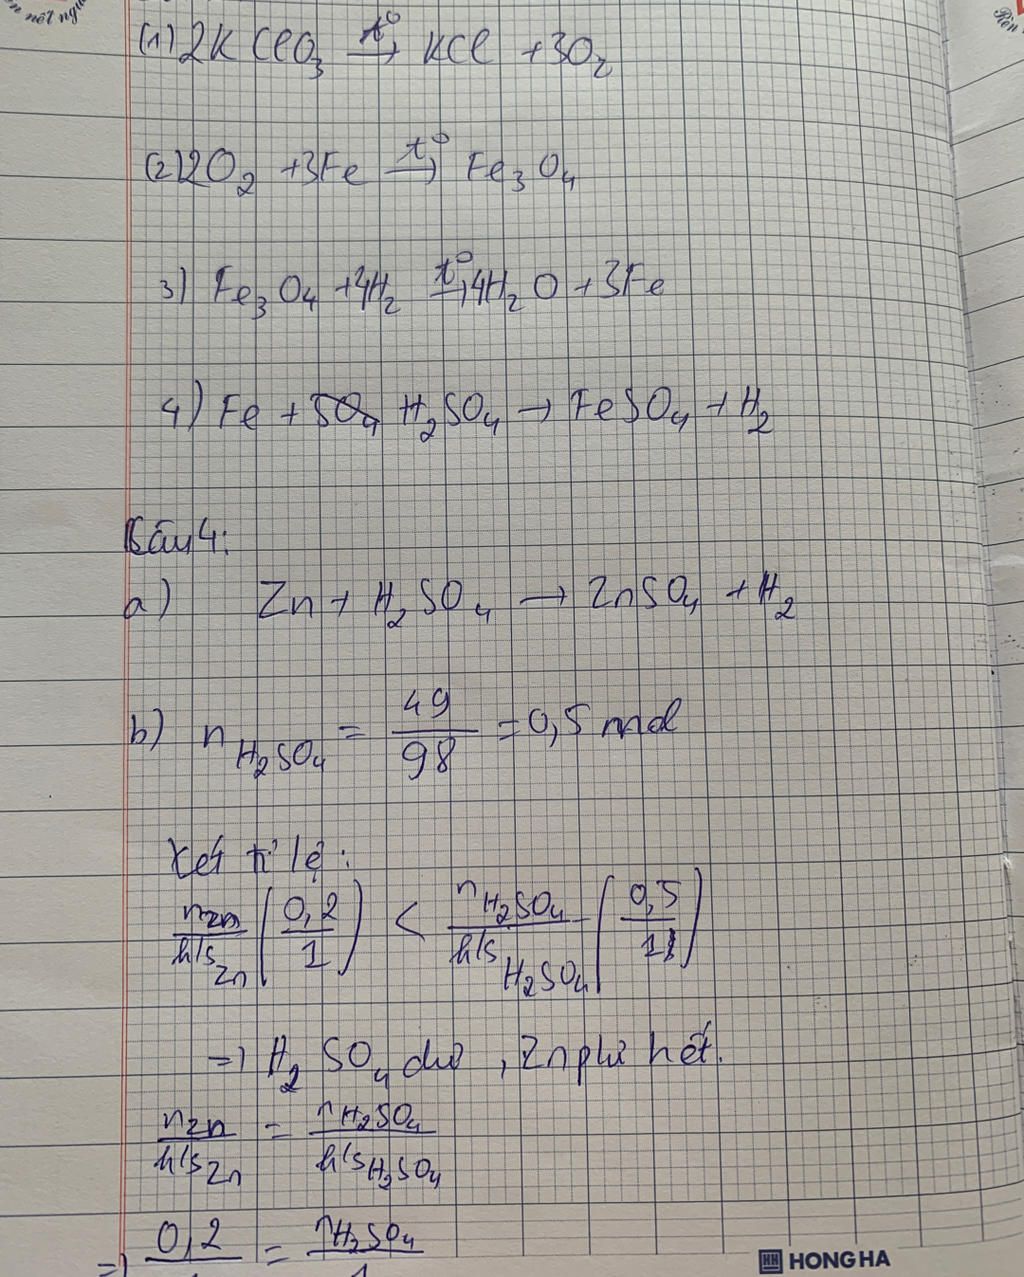 ền nết ngư
Rèn
(1) 2KClO₃ →(t°) KCl + 3O₂
(2) 2O₂ + 3Fe →(t°) Fe₃O₄
3) Fe₃O₄ + 4H₂ →(t°) 4H₂O + 3Fe
4) Fe + H₂SO₄ → FeSO₄ + H₂
Câu 4:
a) Zn + H₂SO₄ → ZnSO₄ + H₂
b) n H₂SO₄ = 49/98 = 0,5 mol
Xét tỉ lệ:
nZn/h/s Zn (0,2/1) < nH₂SO₄/h/s H₂SO₄ (0,5/1)
=) H₂SO₄ dư, Zn phứ hết.
nZn/h/s Zn = nH₂SO₄/h/s H₂SO₄
=) 0,2/1 = nH₂SO₄/1
HH HONG HA